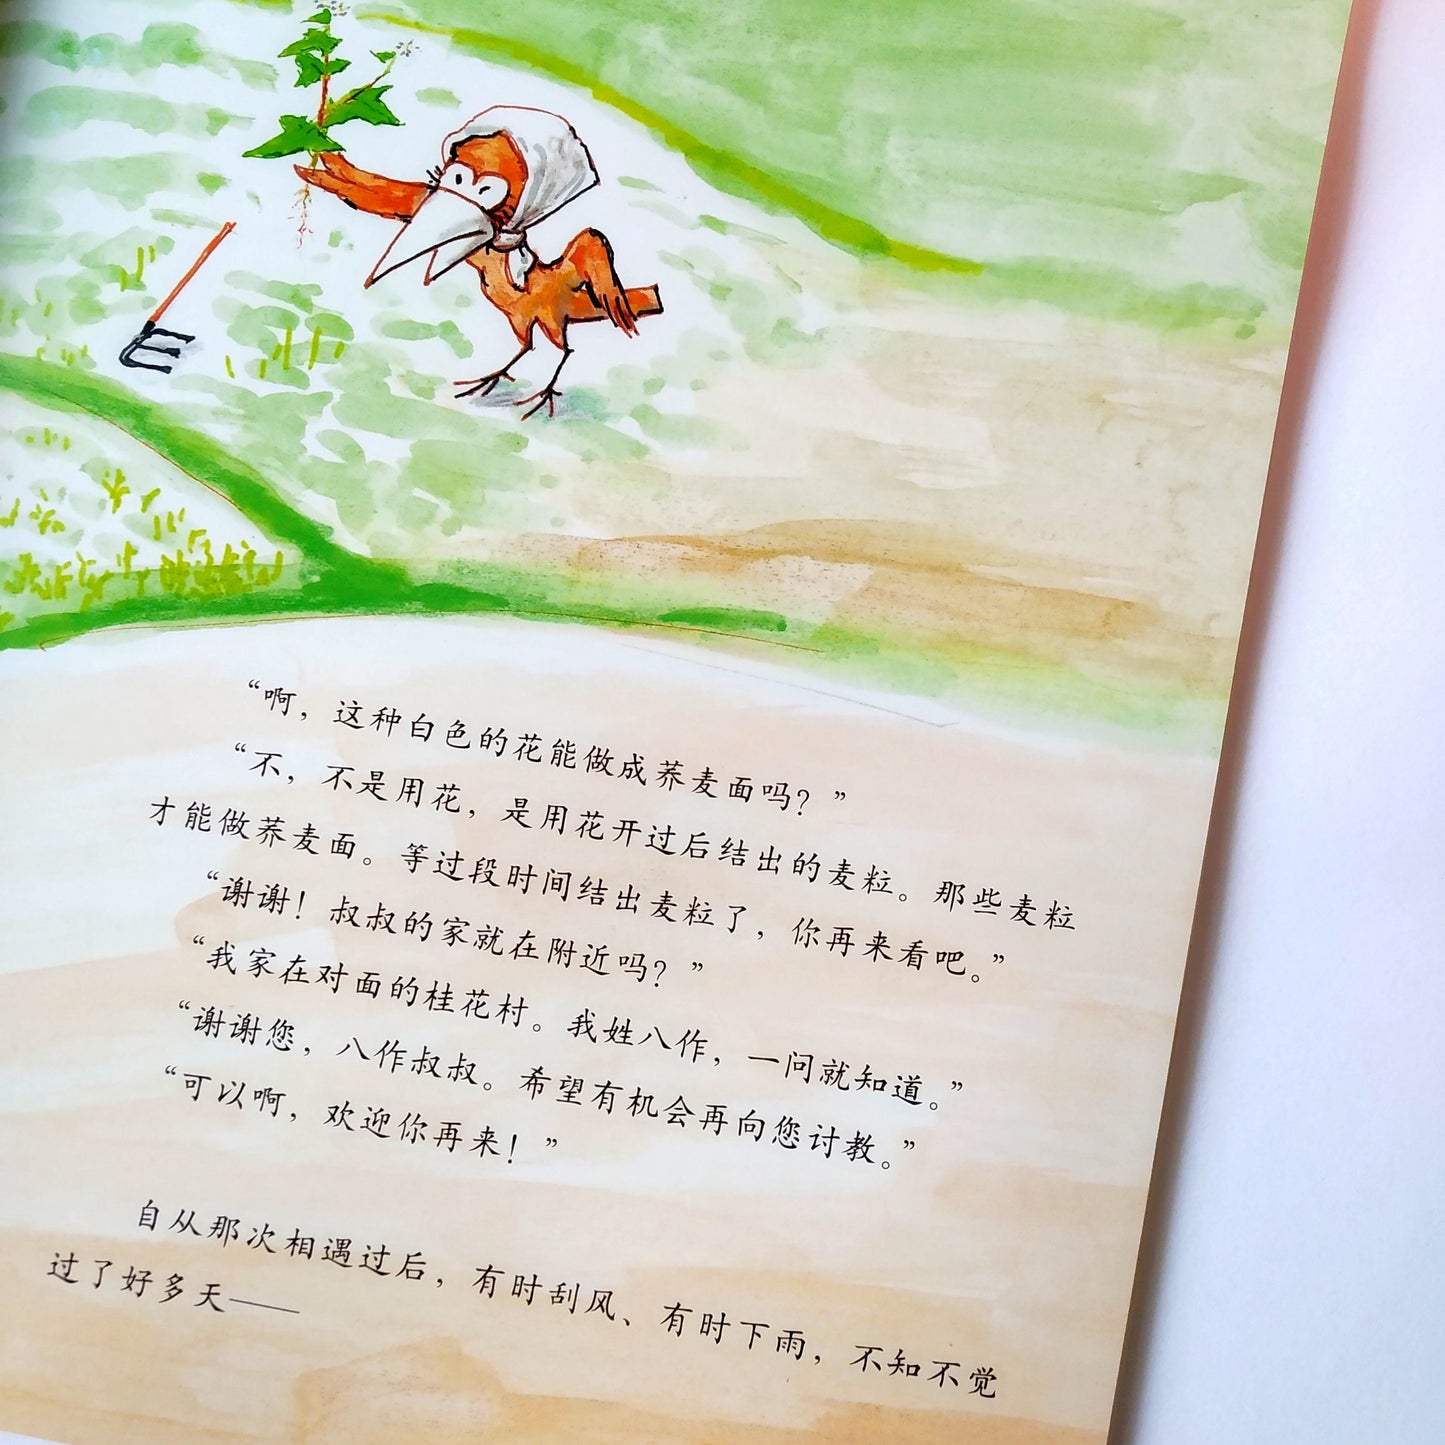 “啊，这种白色的花能做成荞麦面吗？”
“不，不是用花，是用花开过后结出的麦粒。那些麦粒
才能做荞麦面。等过段时间结出麦粒了，你再来看吧。”
“谢谢！叔叔的家就在附近吗？”
“我家在对面的桂花村。我姓八作，一问就知道。”
“谢谢您，八作叔叔。希望有机会再向您讨教。”
“可以啊，欢迎你再来！”
自从那次相遇过后，有时刮风、有时下雨，不知不觉
过了好多天——